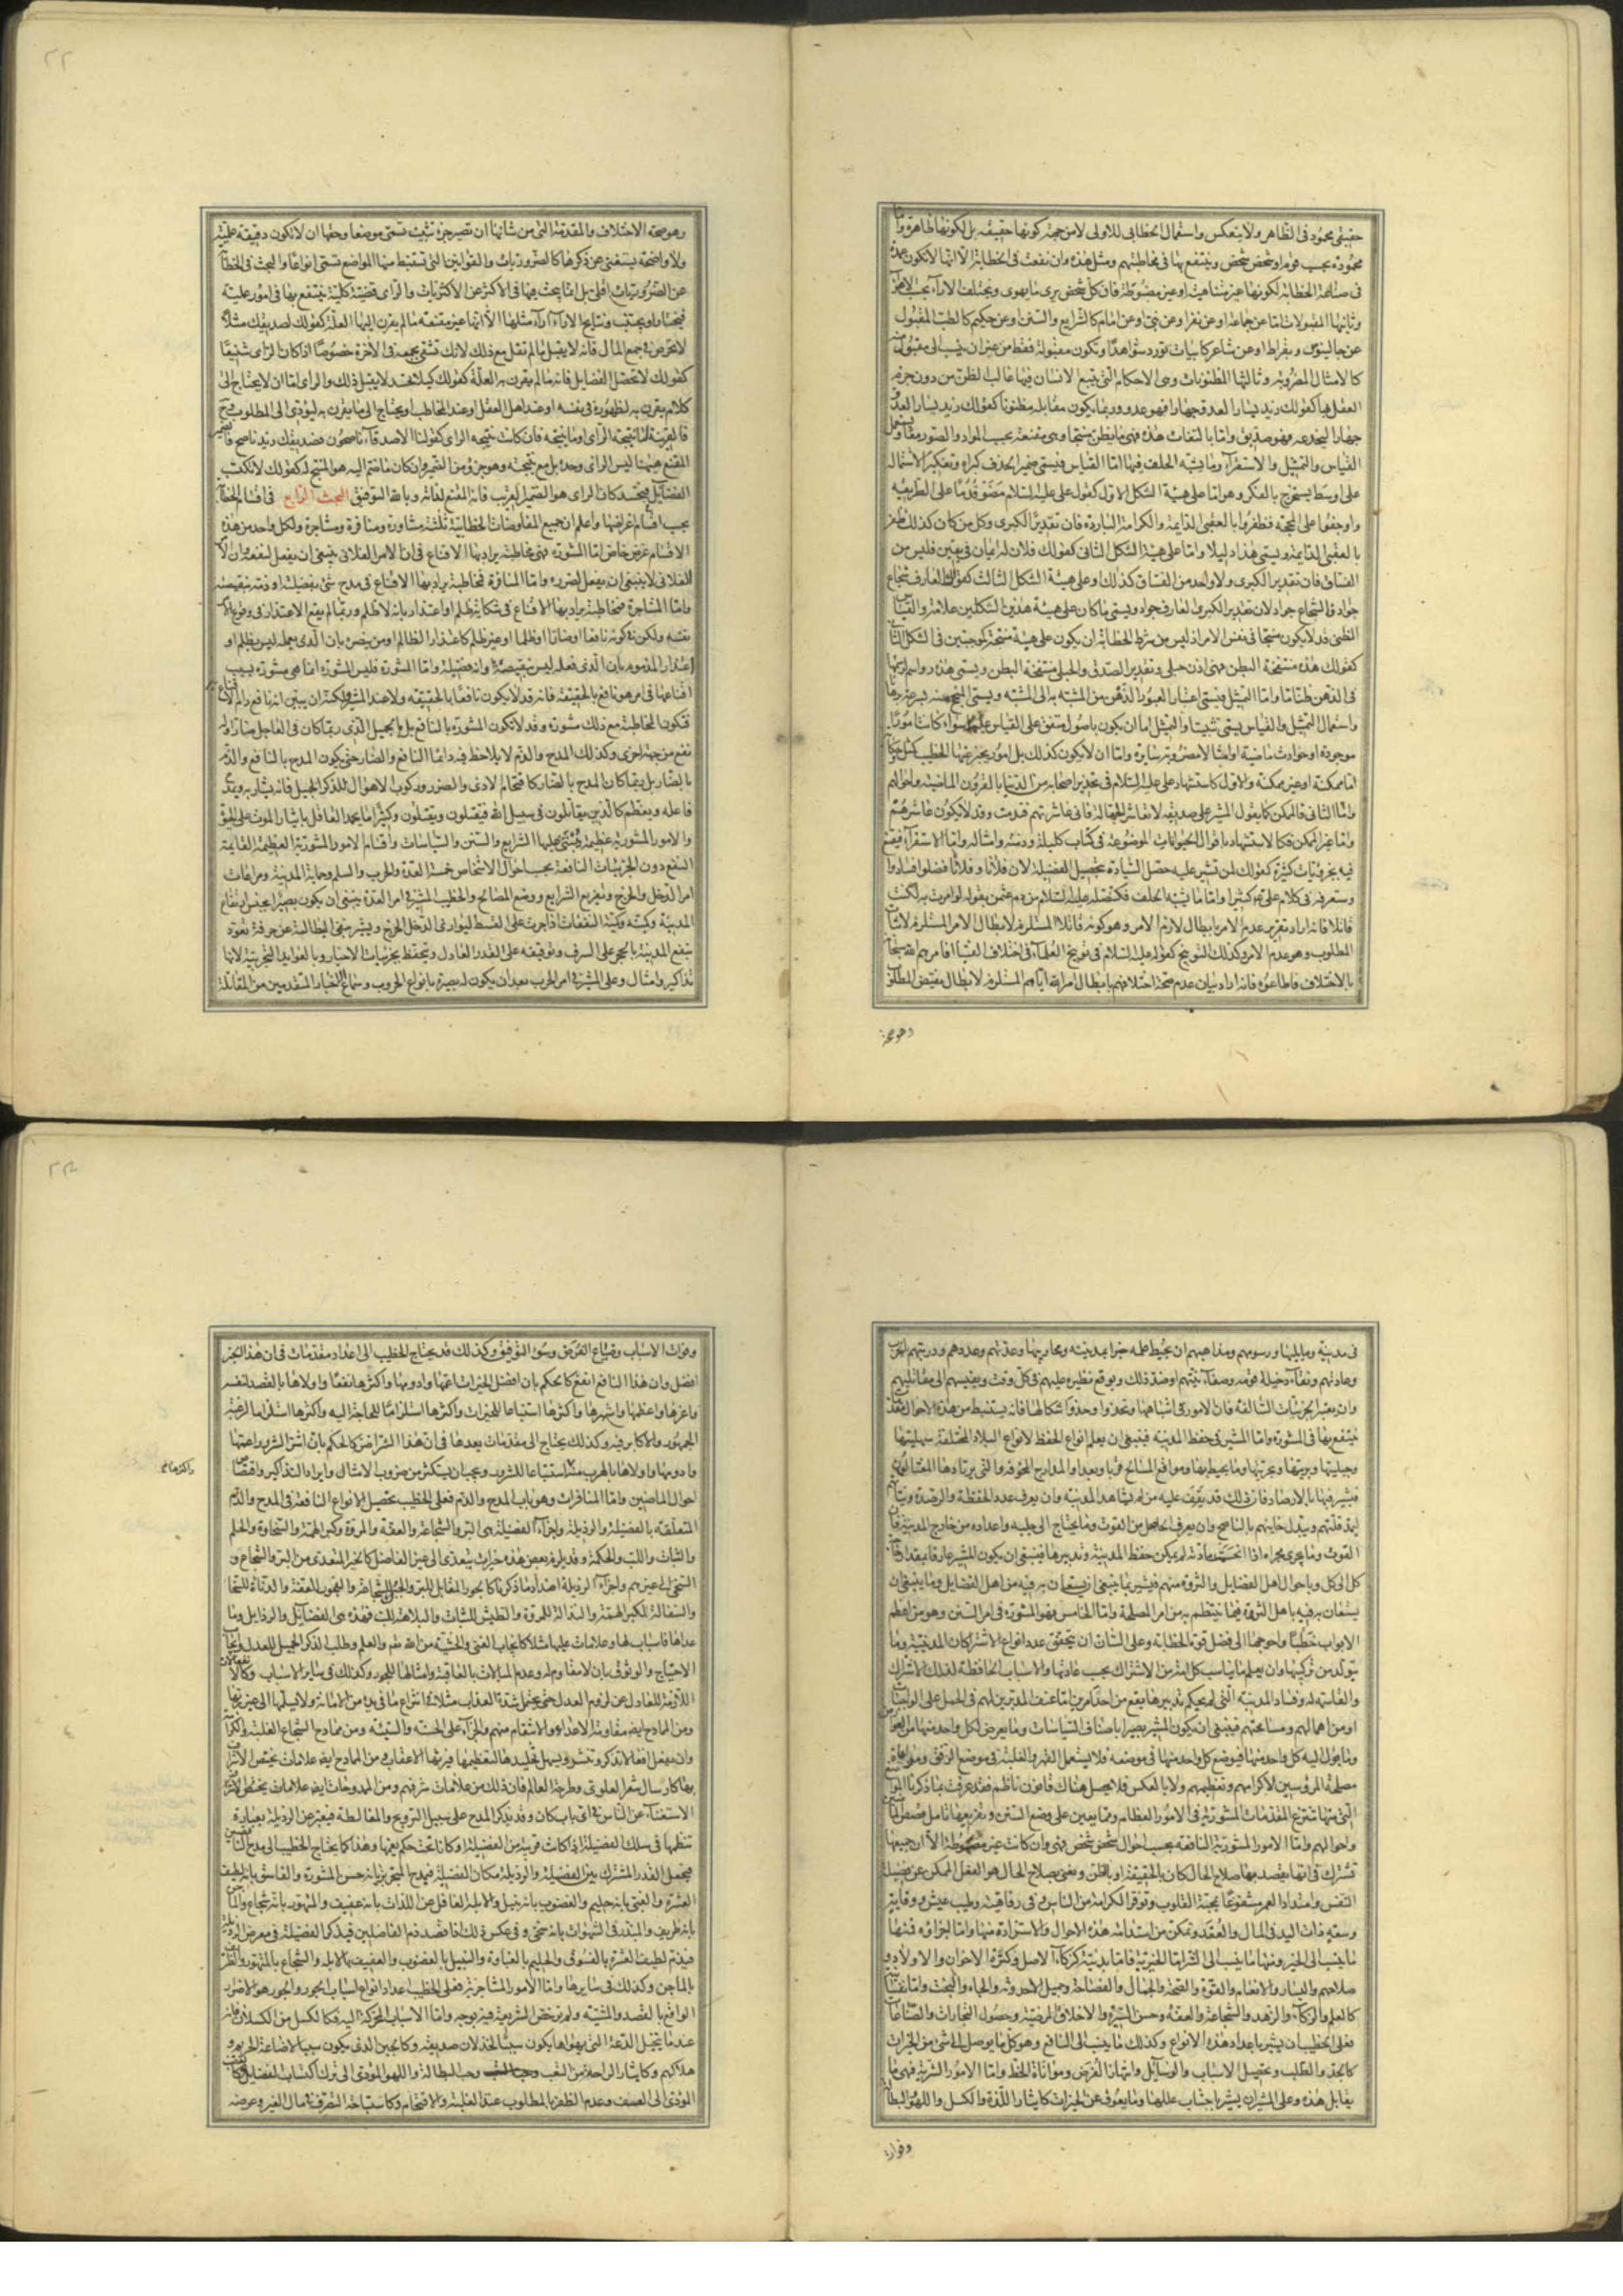 حقيقى محمود فى الظاهر ولا ينعكس واستعمال الخطابى للاولى لا من جهة كونها حقيقيه بل لكونها ظاهرة واما
محمودة بحسب قوم او شخص شخص وينتفع بها فى مخاطبتهم ومثل هذه وان نفعت فى الخطابة الا انها لا تكون عمدة
فى صناعة الخطابة لكونها غير متناهيت او غير مضبوطة فان كل شخص يرى ما يهوى ويختلف الاراء بحسب الاهواء
وثانيها المقبولات اما عن جماعة او عن نفر او عن نبى او عن امام كالشرايع والسنن او عن حكيم كالطب المقبول
عن جالينوس وبقراط او عن شاعر كابيات تورد شواهد او تكون مقبولة فقط من غير ان ينسب الى مقبول منه
كالامثال المضروبة وثالثها المظنونات وهى الاحكام التى يتبع الانسان فيها غالب الظن من دون جزم
العقل بها كقولك زيد يسار العدو جهارا فهو عدو وربما يكون مقابله مظنونا كقولك زيد يسار العدو
جهارا ليخدعه فهو صديق واما بالتفات هذه فهى ما يظن منتجا وهى مقنعة بحسب المواد والصور معا ويستعمل
القياس والتمثيل والاستقراء وما يشبه الخلف فيها اما القياس فيسمى ضميرا لحذف كبراه وتفكيرا لاشتماله
على اوسط يستخرج بالفكر وهو اما على هيئة الشكل الاول كقوله على عليه السلام مضوا قدما على الطريقه
واوجفوا على المحجة فظفروا بالعقبى الدايمة والكرامة الباردة فان تقدير الكبرى وكل من كان كذلك ظفر
بالعقبى الدايمة ويسمى هذا دليلا واما على هيئة الشكل الثانى كقولك فلان له ايمان فى يقين فليس من
الفساق فان تقدير الكبرى ولا واحد من الفساق كذلك وعلى هيئة الشكل الثالث كقولك العارف شجاع
جواد فالشجاع جواد لان تقدير الكبرى العارف جواد ويسمى ما كان على هيئة هذين الشكلين علامة والقياس
الظنى قد لا يكون منتجا فى نفس الامر اذ ليس من شرط الخطابة ان يكون على هيئة منتجة كموجبتين فى الشكل الثانى
كقولك هذه منتفخة البطن فهى اذن حبلى وتقدير الصدق والحبلى منتفخة البطن ويسمى هذه رواسم
فى الذهن ظنا ما واما التمثيل فيسمى اعتبار العبور الذهن من المشبه به الى المشبه ويسمى المنجح منه بسرعة برهانا
واستعمال التمثيل والقياس يسمى تثبيتا والتمثيل اما ان يكون باصول متفق على القياس عليها سواء كانت امورا
موجودة او حوادث ماضية او امثالا مضروبة سايرة واما ان لا يكون كذلك بل امور يخترعها الخطيب
اما ممكنة او غير ممكنة والاول كاستشهاد على عليه السلام فى تحذير اصحابه من الدنيا بالقرون الماضية واحوالهم
واما الثانى فالممكن كما يقول المشير على صديقه لا تعاشر الجهال فانى عاشرتهم فندمت وقد لا يكون عاشرهم
واما غير الممكن فكالاستشهاد باقوال الحيوانات الموضوعة فى كتاب كليلة ودمنة وامثاله واما الاستقراء فيقنع
فيه بجزئيات كثيرة كقولك لمن تشير عليه حصل السيادة بتحصيل الفضيلة لان فلانا وفلانا فضلوا فسادوا
وستعرفه فى كلام على كثيرا واما ما يشبه الخلف فكتنصله عليه السلام من دم عثمن بقوله لو امرت به لكنت
قاتلا فانه اراد تقرير عدم الامر بابطال لازم الامر وهو كونه قاتلا المستلزم لابطال الامر المستلزم لاثبات
المطلوب وهو عدم الامر وكذلك التوبيخ كقوله عليه السلام فى توبيخ العلماء فى اختلاف الفتيا افامرهم الله سبحانه
بالاختلاف فاطاعوه فانه اراد بيان عدم صحة اختلافهم بابطال امر الله اياهم المستلزم لابطال نقيض المطلوب
وهو صحة
٢٢
وهو صحة الاختلاف والمقدمة التى من شانها ان تصير جزء تثبيت تسمى موضعا وحقها ان لا تكون دقيقة علمية
ولا واضحة يستغنى عن ذكرها كالضروريات والقوانين التى تستنبط منها المواضع تسمى انواعا والبحث فى الخطابة
عن الضروريات اقل بل انما يبحث فيها فى الاكثر عن الاكثريات والراى قضية كلية ينتفع بها فى امور عملية
فيختار او يجتنب ونتايج الاراء اراء مثلها الا انها غير مقنعة ما لم يقرن اليها العلة كقولك لصديقك مثلا
لا تحرص فى جمع المال فانه لا يقبل ما لم تقل مع ذلك لانك تشقى بجمعه فى الاخرة خصوصا اذا كان الراى شنيعا
كقولك لا تحصل الفضايل فانه ما لم يقرن به العلة كقولك كيلا تحسد لا يقبل ذلك والراى اما ان لا يحتاج الى
كلام يقرن به لظهوره فى نفسه او عند اهل العقل او عند المخاطب او يحتاج الى ما يقرن به ليؤدى الى المطلوب فح
فالقرينة اما نتيجة الراى او ما ينتجه فان كانت نتيجه الراى كقولنا الاصدقاء ناصحون فصديقك زيد ناصح
المقنع هيهنا ليس الراى وحده بل مع نتيجته وهو جزء من الضمير وان كان ما ضم اليه هو المنتج له كقولك لا تكتسب
الفضايل فتحسد كان الراى هو الضمير القريب فانه المقنع لذاته وبالله التوفيق البحث الرابع فى اقسام الخطابة
بحسب اقسام اغراضها واعلم ان جميع المفاوضات الخطابية ثلثة مشاورة ومنافرة ومشاجرة ولكل واحد من هذه
الاقسام غرض خاص اما المشورة فهى مخاطبة يراد بها الاقناع فى ان الامر الفلانى ينبغى ان يفعل لنفعه وان
الفلانى لا ينبغى ان يفعل لضرره واما المنافرة فمخاطبة يراد بها الاقناع فى مدح شى بفضيلة او ذمه بنقيصه
واما المشاجرة فمخاطبة يراد بها الاقناع فى شكاية ظلم او اعتذار بانه لا ظلم وربما لم يقع الاعتذار فى وقوع
نفسه ولكن فى كونه نافعا او ضارا او ظلما او غير ظلم كاعتذار الظالم او من ينصره بان الذى يعمله ليس بظلم او
اعتذار المذموم بان الذى فعله ليس بنقيصة وانه فضيلة واما المشورة فليس المشورة انما هى مشورة بسبب
اقناعها فى امر هو نافع بالحقيقة فانه قد لا يكون نافعا بالحقيقة ولا عند المشير ولكنه ان يبين انه نافع
فتكون المخاطبة مع ذلك مشورة وقد لا تكون المشورة بالنافع بل بالجميل الذى ربما كان فى العاجل ضارا وله
نفع من جهة اخرى وكذلك المدح والذم لا يلاحظ فيه دائما النافع والضار حتى يكون المدح بالنافع والذم
بالضار بل ربما كان المدح بالضار كاقتحام الاذى والضرر وركوب الاهوال للذكر الجميل فانه
فاعله ويعظم كالذين يقاتلون فى سبيل الله فيقتلون ويقتلون وكثيرا ما يحمد العاقل بايثار الموت على الحيوة
والامور المشورية عظيمة يبتنى عليها الشرايع والسنن والسياسات واقسام الامور المشورية العظيمة العايمة
النفع دون الجزئيات النافعة بحسب احوال الاشخاص خمسة العدة والحرب والسلم وحماية المدينة ومراعات
امر الدخل والخرج وتفريع الشرايع ووضع المصالح والخطيب المشير فى امر العدة ينبغى ان يكون بصيرا بجنس ارتفاع
المدينة وكميته وكمية النفقات اذا جرت على القسط ليوازى الدخل الخرج ويشير بنفى البطالة عن حرفة تعود
بنفع المدينة بالحجر على السرف وتوقيفه على القدر العادل ويتحفظ بجزئيات الاخبار وبالعوايد التجربية لانها
تذاكير وامثال وعلى المشير فى امر الحرب بعد ان يكون له بصيرة بانواع الحروب وسماع اخبار المتقدمين من المقاتلة
فى مدينة وما يليها ورسومهم ومذاهبهم ان يحيط علمه خبرا بمدينته ومحاربيها وعدتهم وعددهم ودربتهم بالحرب
وعادتهم
وان يعتبر الجزئيات السالفة فان الامور فى اشباهها وتحذو حذو اشكالها فانه يستنبط من هذه الاحوال مقدمات
ينتفع بها فى المشورة واما المشير فى حفظ المدينه فينبغى ان يعلم انواع الحفظ لانواع البلاد المختلفة سهليتها
وجبليتها وبريتها وبحريتها وما يحيط بها ومواقع المسالح قربا وبعدا والمدارج المخوفة والتى يرتادها
فيشير فيها بالارصاد فان ذلك قد يقف عليه من لم يشاهد المدينة وان يعرف عدد الحفظة
ليمد قلتهم ويبدل خاينهم بالناصح وان يعرف الحاصل من القوت وما يحتاج الى جلبه واعداده من خارج المدينة فان
القوت وما يجرى مجراه اذا انحسمت مادته لم يمكن حفظ المدينة وتدبيرها فينبغى ان يكون المشير عارفا بمقدار
كل الى كل وباحوال اهل الفضايل والثروة منهم فيشير بما ينبغى ان يستعان به فيه من اهل الفضايل وما ينبغى ان
يستعان به فيه باهل الثروة فيما ينتظم به من امر المصلحة واما الخامس فهو المشورة فى امر السنن وهو من اعظم
الابواب خطبا واحوجها الى فضل قوة الخطابة وعلى السان ان يتحقق عدد انواع الاشتراكات المدنية وما
يتولد من تركيبها وان يعلم ما يناسب كل امة من الاشتراك بحسب عاداتها والاسباب الحافظة لذلك الاشتراك
والفاسخة له وفساد المدينة التى لم يحكم تدبيرها يقع من احد امرين اما عنف المدبرين لهم فى الحمل على الواجبات
او من اهمالهم ومسامحتهم فينبغى ان يكون المشير بصيرا باصناف السياسات وما يعرض لكل واحد منها
وما يؤول اليه كل واحد منها فيوضع كل واحد منها فى موضعه فلا يستعمل القهر والغلبة فى موضع الرفق
مصلحة المرؤسين لاكرامهم وتعظيمهم ولا بالعكس فلا يحصل هناك قانون ناظم فقد عرفت بما ذكرنا المواضع
التى منها تنتزع المقدمات المشورية فى الامور العظام وما يعين على وضع السنن وتفريعها تامل قصص
واحوالهم واما الامور المشورية النافعة بحسب احوال شخص شخص فهى وان كانت غير مضبوطة الا ان جميعها
تشترك فى انها يقصد بها صلاح الحال كان بالحقيقة او بالظن ونعنى بصلاح الحال هو الفعل الممكن عن فضيلة
النفس وامتداد العمر مشفوعا بمحبة القلوب وتوفر الكرامة من الناس وفى رفاهية وطيب عيش ووقاية
وسعة ذات اليد فى المال والعقد وتمكن من استدامة هذه الاحوال والاستزادة منها واما اجزاؤه فمنها
ما ينسب الى الخير ومنها ما ينسب الى
صلاحهم واليسار والانعام والقوة والصحة والجمال والفصاحة وجميل الاحدوثة والجاه والبخت واما
كالعلم والزكاء والزهد والشجاعة والعفة وحسن السيرة والاخلاق المرضية وحصول التجارات والصناعات
فعلى الخطيب ان يشير باعداد هذه الانواع وكذلك ما ينسب الى النافع وهو كل ما يوصل الى شى من الخيرات
كالجد والطلب وتحصيل الاسباب والوسايل وانتهاز الفرص ومواتاة الحظ واما الامور الشرية فهى ما
يقابل هذه وعلى المشير ان يشير باجتناب عللها وما يعوق عن الخيرات كايثار اللذة والكسل واللهو والبطالة
وفوات
٢٣
وفوات الاسباب وضياع الفرص وسوء التوفيق وكذلك قد يحتاج الخطيب الى اعداد مقدمات فى ان هذا الخير
افضل وان هذا النافع انفع كالحكم بان افضل الخيرات اعمها وادومها واكثرها نفعا واولاها بالقصد لنفسه
واعزها واعظمها واشهرها واكثرها استتباعا للخيرات واكثرها استلزاما للحاجة اليه واكثرها استلزاما لرغبة
الجمهور والاكابر فيه وكذلك يحتاج الى مقدمات بعدها فى ان هذا الشر اضر كالحكم بان اشر الشرور اعمها
وادومها واولاها بالهرب منه استتباعا للشرور ويجب ان يستكثر من ضروب الامثال وايراد التذاكير
واكثرها
احوال الماضين واما المنافرات وهو باب المدح والذم فعلى الخطيب تحصيل الانواع النافعة فى المدح والذم
المتعلقة بالفضيلة والرذيلة واجزاء الفضيلة هى البر والشجاعة والعفة والمروة وكبر الهمة والسخاوة والحلم
والثبات واللب والحكمة وقد يلزم بعض هذه خيرات يتعدى الى غير الفاضل كالخير المتعدى من البر والشجاع و
السخى الى غيرهم واجزاء الرذيلة اضداد ما ذكرنا كالجور المقابل للبر والجبن للشجاعة والفجور للعفة والدناءة للسخا
والسفالة لكبر الهمة والنذالة للمروة والطيش للثبات والبلاهة للب فهذه هى الفضايل والرذايل وما
عداها فاسباب لها وعلامات عليها مثلا كايجاب الغنى والخشية من الله تع والعلم وطلب الذكر الجميل للعدل
الاحتياج والوثوق بان لا مقاوم له وعدم المبالات بالعاقبة وامثالها للجور وكذلك فى ساير الاسباب
اللازمة للعادل عن لزوم العدل حتى يحتمل شدة العذاب مثلا فى انتزاع ما فى يده من الامانة ولا يسلمها الى غير ربها
ومن المادح ايضا مقاومة الاعداء والانتقام منهم والجزاء على الحسنة والسيئة ومن ممادح الشجاع الغلبة
وان يفعل افعالا تذكر وتنشر ويسهل تخليدها لتعظيمها فيرثها الاعقاب ومن المادح ايضا علامات يختص الاشراف
بها كارسال شعر العلوى وطرحة العالم فان ذلك من علامات شرفهم ومن الممدوحات ايضا علامات
الاستغناء عن الناس فى اى باب كان وقد يذكر المدح على سبيل الترويج والمغالطة فيعبر عن الرذيلة بعبارة
تنظمها فى سلك الفضيلة اذا كانت قريبة من الفضيلة او كانا تحت حكم يعمهما وهذا كما يحتاج الخطيب الى مدح
فيجعل القدر المشترك بين الفضيلة والرذيلة مكان الفضيلة فيمدح المتحرز بانه حسن المشورة والفاسق بانه لطيف
العشرة والغبى بانه حليم والغضوب بانه نبيل والابله الغافل عن اللذات بانه عفيف والمتهور بانه شجاع
بانه ظريف والمبذر فى الشهوات بانه سخى وفى عكس ذلك اذا قصد ذم الفاضلين فيذكر الفضيلة فى معرض الرذيلة
فيذم لطيف العشرة بالفسوق والحليم بالغباوة والنبيل بالغضوب والعفيف بالابله والشجاع بالمتهور والظريف
بالماجن وكذلك فى سايرها واما الامور المشاجرية فعلى الخطيب اعداد انواع اسباب الجور والجور هو الاضرار
الواقع بالقصد والمشية ولم ترخص الشريعة فيه بوجه واما الاسباب المحركة اليه فكالكسل من الكسلان فانه
عند ما يتخيل الدعة التى يهواها يكون سببا لخذلان صديقه وكالجبن الذى يكون سببا لاضاعة الحريم و
هلاكهم وكايثار الراحة من التعب وحب البطالة واللهو المؤدى الى ترك اكتساب الفضايل
المؤدى الى العسف وعدم الظفر بالمطلوب عند الغلبة والاقتحام وكاستباحة التصرف بمال الغير وعرضه